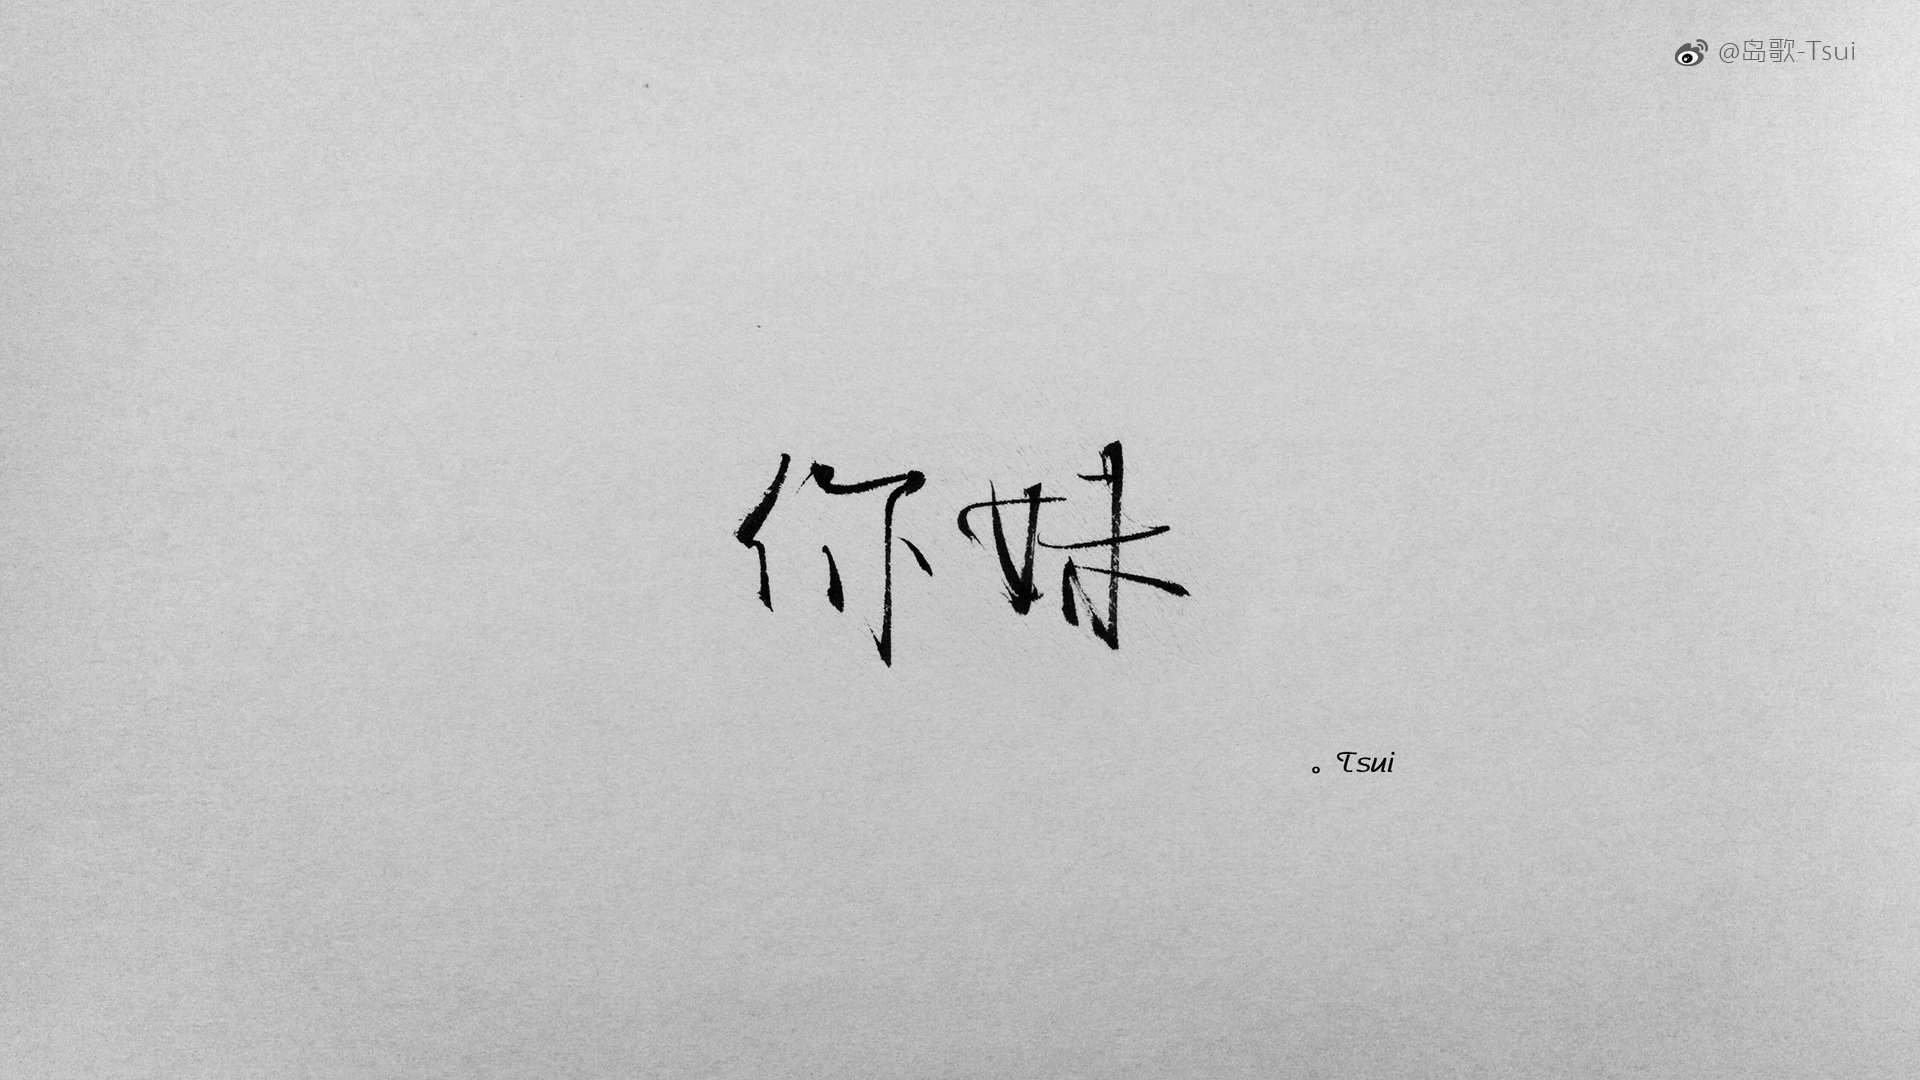 @岛歌-Tsui
你妹
。Tsui